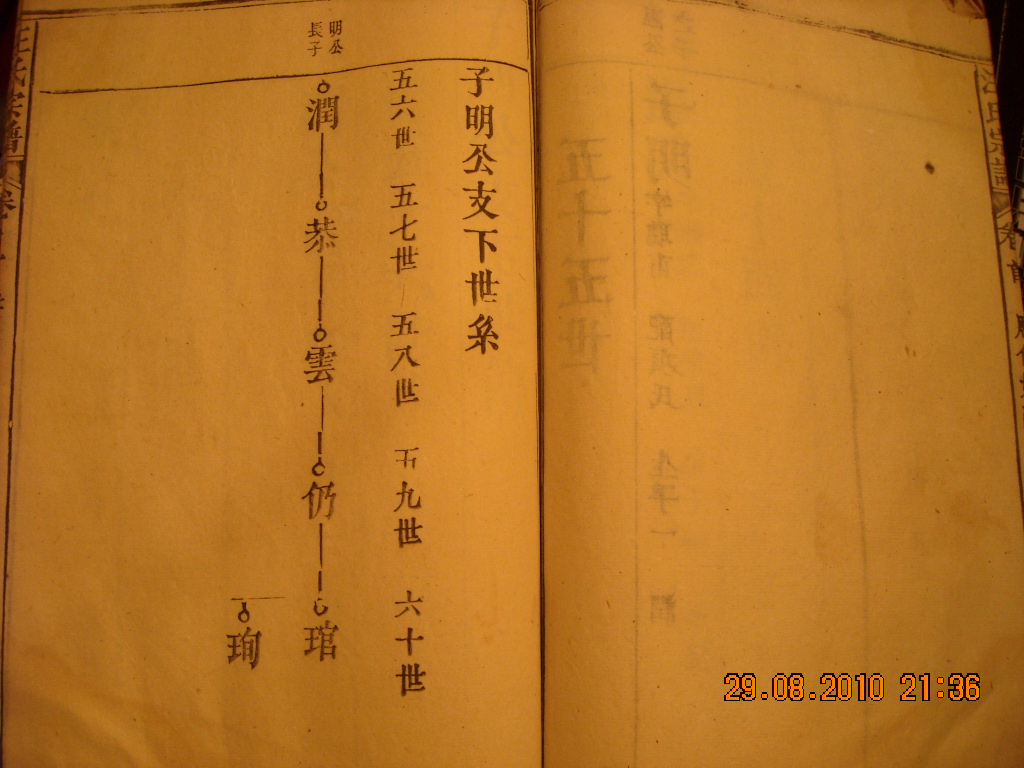 子明公支下世系
五六世 五七世 五八世 五九世 六十世
明公
長子
潤 恭 雲 仍 琯
珣
氏宗譜
五十五世
子明
29.08.2010 21:36